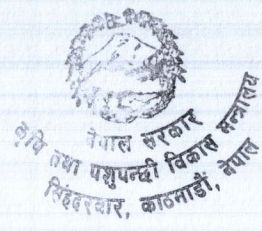 नेपाल सरकार
कृषि तथा पशुपन्छी विकास मन्त्रालय
सिंहदरवार, काठमाडौं, नेपाल